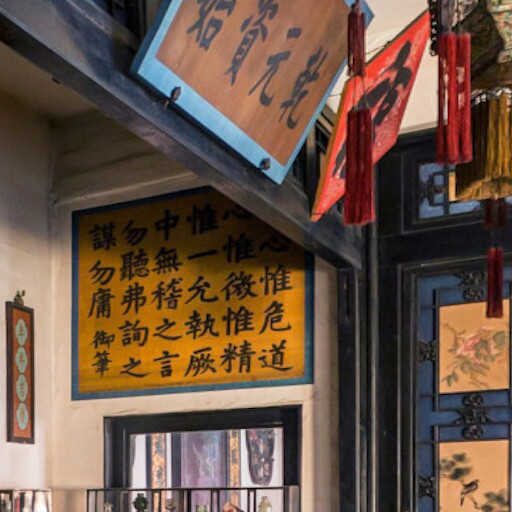 乾元資始
心惟危道
心惟微惟精
惟一允執厥
中無稽之言
勿聽弗詢之
謀勿庸 御筆